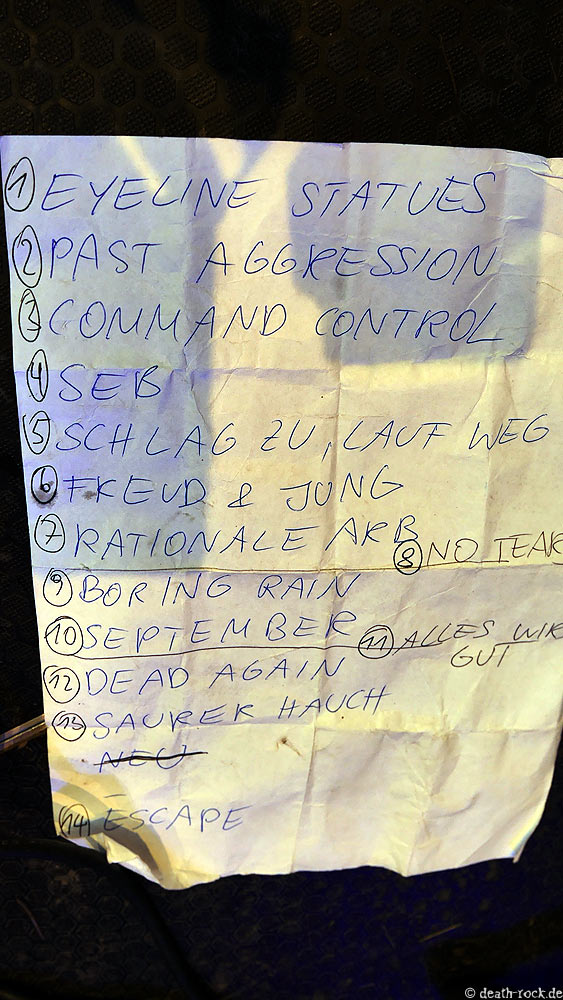 1 EYELINE STATUES
2 PAST AGGRESSION
3 COMMAND CONTROL
4 SEB
5 SCHLAG ZU, LAUF WEG
6 FREUD & JUNG
7 RATIONALE ARB
8 NO TEAR
9 BORING RAIN
10 SEPTEMBER
11 ALLES WIR
GUT
12 DEAD AGAIN
13 SAURER HAUCH
NEU
14 ESCAPE
© death-rock.de